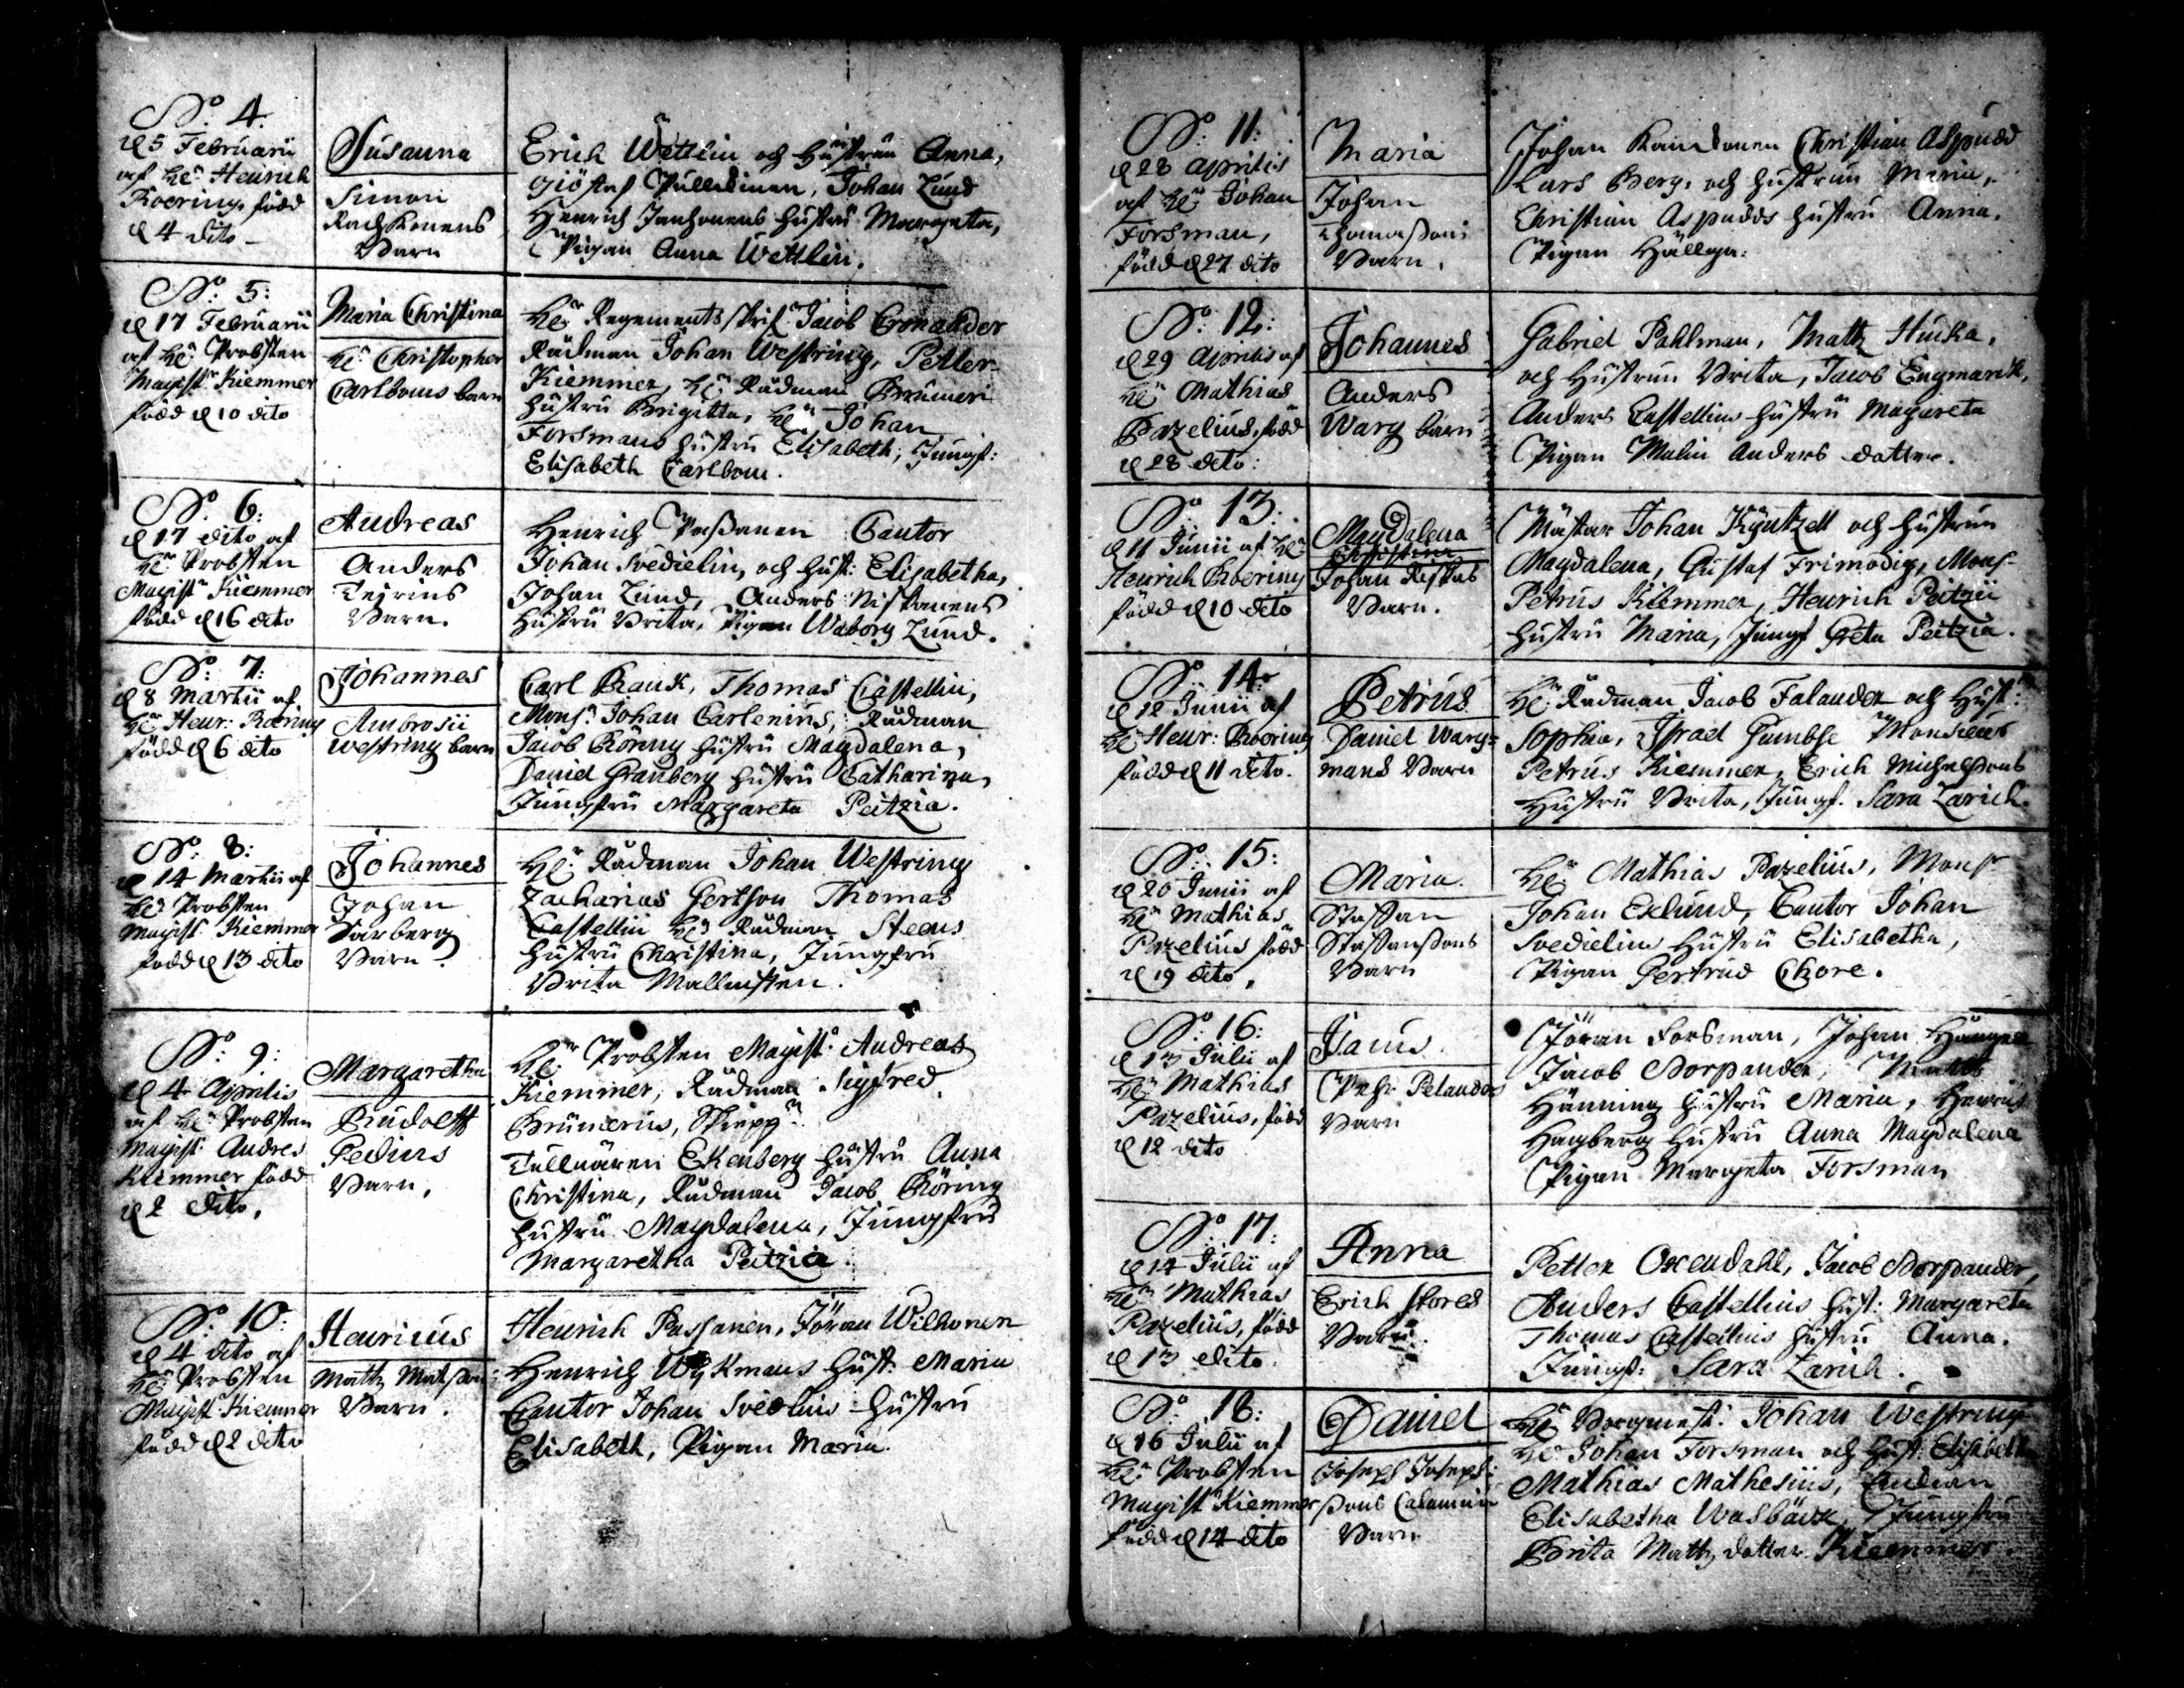 No: 4.
d 5 Februarii
af Hr: Henrich
Roering, född
d 4 dito
Susanna
Simon
Rachkonens
Barn
Erich Wettlin och Hustrun Anna,
Giöstaf Pullidinen, Johan Lund
Henrich Janhonens Hustru Margeta,
Pigan Anna Wettlin.
No: 5:
d 17 Februarii
af Hr: Probsten
Magist: Kiemmer
född d 10 dito
Maria Christina
Hr: Christopher
Carlboms barn
Hr: Regements skrif: Jacob Cronander
Rådman Johan Westring, Petter
Kiemmer, Hr: Rådman Brumeri
Hustru Brigitta, Hr: Johan
Forsmans Hustru Elisabeth, Jungf:
Elisabeth Carlbom.
No: 6:
d 17 dito af
Hr: Probsten
Magist: Kiemmer
född d 16 dito
Andreas
Anders
Barn.
Henrich Passanen Cantor
Johan Svedielin, och Hust: Elisabetha,
Johan Lund, Anders Niskanens
Hustru Brita, Pigan Waborg Lund.
No: 7:
d 8 Martii af
Hr: Henr: Roering
född d 6 dito
Johannes
Ambrosii
Westring barn
Carl Krank, Thomas Castellin,
Mons: Johan Carlenius, Rådman
Jacob Röring Hustru Magdalena,
Daniel Granberg Hustru Catharina,
Jungfru Margareta Peitzia.
No: 8:
d 14 Martii af
Hr: Probsten
Magist: Kiemmer
född d 13 dito
Johannes
Johan
Barn
Hr: Rådman Johan Westring
Zacharias Gertson Thomas
Castellii Hr: Rådman Steens
Hustru Christina, Jungfru
Brita Wallensten.
No: 9:
d 4 Aprilis
af Hr: Probsten
Magist: Andres
Kiemmer född
d 2 dito.
Margaretha
Rudolff
Pedius
Barn.
Hr: Probsten Magist: Andreas
Kiemmer, Rådman Sigfred
Brumerus, Skiepp:
Tullnären Ekenberg Hustru Anna
Christina, Rådman Jacob Röring
Hustru Magdalena, Jungfru
Margaretha Peitzia.
No: 10:
d 4 dito af
Hr: Probsten
Magist: Kiemmer
född d 2 dito
Henricus
Matts Matsson:
Barn.
Henrich Passanen, Jöran Wilhonen
Henrich Wykmans Hust: Maria
Cantor Johan Svedlins Hustru
Elisabeth, Pigan Maria.
No: 11:
d 28 Aprilis
af Hr: Johan
Forsman,
född d 27 dito
Maria
Johan
Thomassons
Barn.
Johan Christian Aspudd
Lars Berg, och Hustrun Maria,
Christian Aspudds Hustru Anna,
Pigan Hällga:
No: 12:
d 29 Aprilis af
Hr: Mathias
Pazelius, född
d 28 dito:
Johannes
Anders
Warg barn
Gabriel Pahlman, Matts Hucka,
och Hustrun Brita, Jacob Engmarck,
Anders Castellius Hustru Magareta
Pigan Malin Anders dotter.
No 13:
d 11 Junii af Hr:
Henrich Roering
född d 10 dito
Magdalena
Christina
Johan
Barn.
Mästar Johan Kyntzell och Hustrun
Magdalena, Gustaf Frimodig, Mons:
Petrus Kiemmer, Henrich Peitzii
Hustru Maria, Jungf Greta Peitzia.
No: 14:
d 12 Junii af
Hr: Henr: Roering
född d 11 dito.
Petrus
Daniel Warg=
mans Barn
Hr: Rådman Jacob Falander och Hust:
Sophia, Israel Gumbse Monsieur
Petrus Kiemmer, Erich Michelsons
Hustru Brita, Jungf. Sara Zarich.
No: 15:
d 20 Junii af
Hr: Mathias
Pazelius född
d 19 dito.
Maria.
Staffan
Staffansons
Barn
Hr: Mathias Pazelius, Mons:
Johan Eklund, Cantor Johan
Svedielins Hustru Elisabetha,
Pigan Gertrud Chore.
No: 16:
d 13 Julii af
Hr: Mathias
Pazelius, född
d 12 dito
Pehr Pelanders
Barn
Jöran Forsman, Johan
Jacob Dorpander, Matts
Hänning Hustru Maria, Henrics
Hagberg Hustru Anna Magdalena
Pigan Margeta Forsman
No: 17:
d 14 Julii af
Hr: Mathias
Pazelius, född
d 13 dito.
Anna
Erich Skores
Barn.
Petter Oxendahl, Jacob Dorpander,
Anders Castellius Hust: Margareta
Thomas Castellius Hustru Anna.
Jungf: Sara Zarich.
No: 18:
d 16 Julii af
Hr: Probsten
Magist: Kiemmer
född d 14 dito
Daniel
Joseph Joseph:
sons Calamnii
Barn
Hr: Borgmest: Johan Westring
Hr: Johan Forsman och Hust: Elisabeth
Mathias Mathesius, Enckian
Elisabetha Wasbäck, Jungfru
Brita Matts dotter Kiemmer.